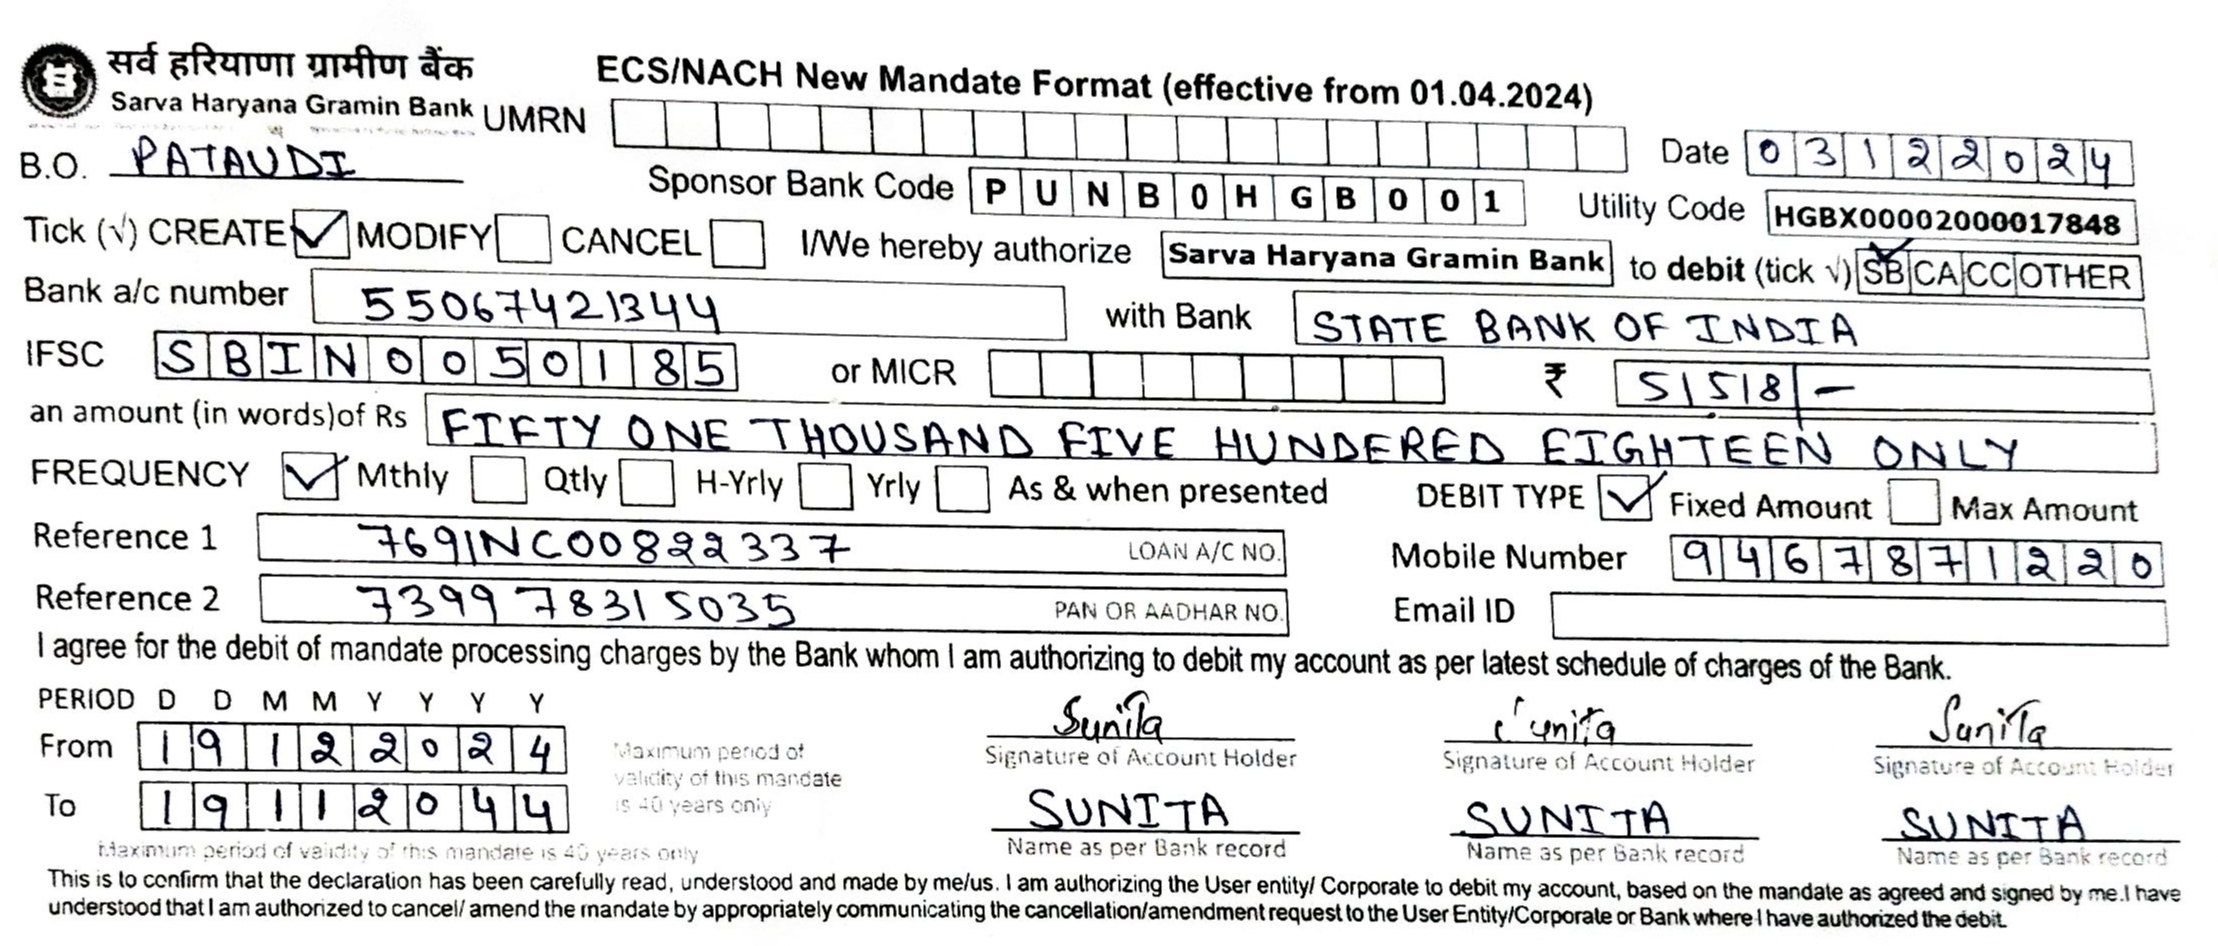 सर्व हरियाणा ग्रामीण बैंक
Sarva Haryana Gramin Bank
ECS/NACH New Mandate Format (effective from 01.04.2024)
UMRN
Date 03122024
B.O. PATAUDI
Sponsor Bank Code PUNB0HGB001
Utility Code HGBX00002000017848
Tick (√) CREATE ✓ MODIFY CANCEL I/We hereby authorize Sarva Haryana Gramin Bank to debit (tick √) SB CA CC OTHER
Bank a/c number 55067421344 with Bank STATE BANK OF INDIA
IFSC SBIN0050185 or MICR ₹ 51518/-
an amount (in words)of Rs FIFTY ONE THOUSAND FIVE HUNDERED EIGHTEEN ONLY
FREQUENCY ✓ Mthly Qtly H-Yrly Yrly As & when presented DEBIT TYPE ✓ Fixed Amount Max Amount
Reference 1 7691NC00822337 LOAN A/C NO. Mobile Number 9467871220
Reference 2 739978315035 PAN OR AADHAR NO. Email ID
I agree for the debit of mandate processing charges by the Bank whom I am authorizing to debit my account as per latest schedule of charges of the Bank.
PERIOD D D M M Y Y Y Y
From 19122024
To 19112044
Maximum period of
validity of this mandate
is 40 years only
Maximum period of validity of this mandate is 40 years only
Sunita Sunita Sunita
Signature of Account Holder Signature of Account Holder Signature of Account Holder
SUNITA SUNITA SUNITA
Name as per Bank record Name as per Bank record Name as per Bank record
This is to confirm that the declaration has been carefully read, understood and made by me/us. I am authorizing the User entity/ Corporate to debit my account, based on the mandate as agreed and signed by me.I have
understood that I am authorized to cancel/ amend the mandate by appropriately communicating the cancellation/amendment request to the User Entity/Corporate or Bank where I have authorized the debit.